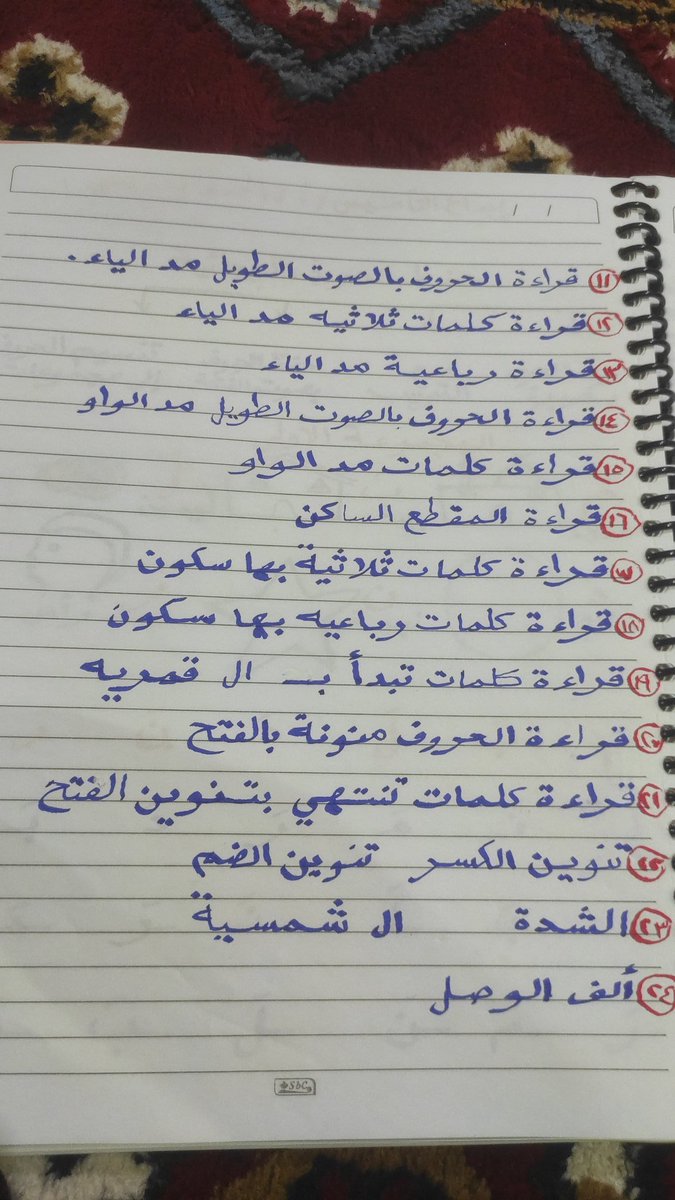 ١١ قراءة الحروف بالصوت الطويل مد الياء.
١٢ قراءة كلمات ثلاثيه مد الياء
١٣ قراءة رباعية مد الياء
١٤ قراءة الحروف بالصوت الطويل مد الواو
١٥ قراءة كلمات مد الواو
١٦ قراءة المقطع الساكن
١٧ قراءة كلمات ثلاثية بها سكون
١٨ قراءة كلمات رباعيه بها سكون
١٩ قراءة كلمات تبدأ بـ ال قمريه
٢٠ قراءة الحروف منونة بالفتح
٢١ قراءة كلمات تنتهي بتنوين الفتح
٢٢ تنوين الكسر تنوين الضم
٢٣ الشدة ال شمسية
٢٤ ألف الوصل
Sbc